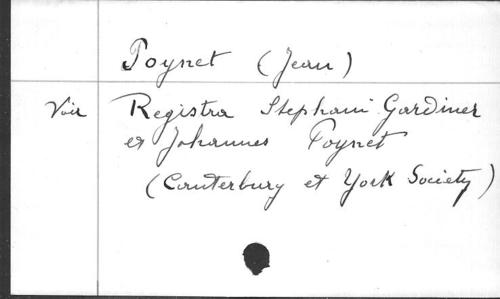 Poynet (Jean)
Voir Registra Stephani Gardiner
et Johannes Poynet
(Canterbury et York Society)